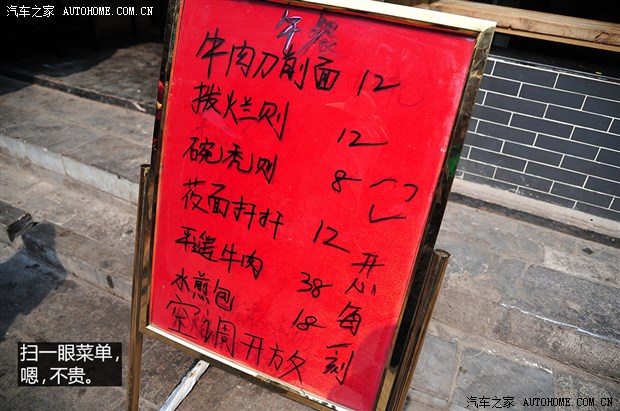 汽车之家 AUTOHOME.COM.CN
午餐
牛肉刀削面 12
拨烂则 12
碗秃则 8
莜面扦扦 12
平遥牛肉 38
水煎包 18
开心每一刻
扫一眼菜单，
嗯，不贵。
汽车之家 AUTOHOME.COM.CN